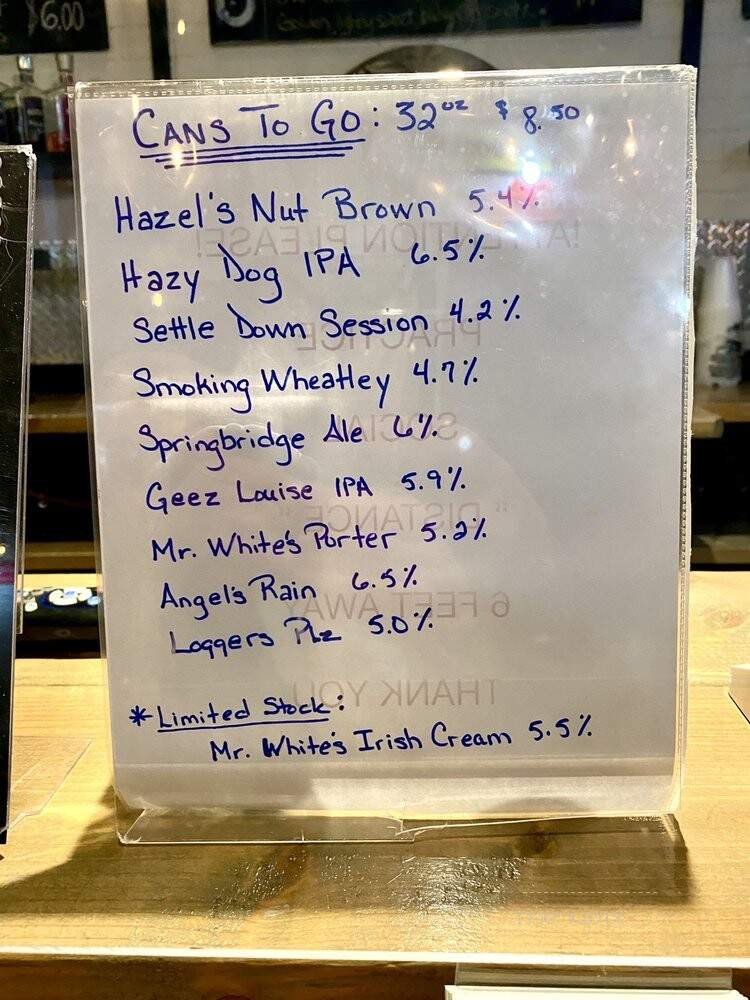 $6.00
CANS TO GO: 32oz $8.50
Hazel's Nut Brown 5.4%
Hazy Dog IPA 6.5%
Settle Down Session 4.2%
Smoking Wheatley 4.7%
Springbridge Ale 6%
Geez Louise IPA 5.9%
Mr. White's Porter 5.2%
Angel's Rain 6.5%
Loggers Plz 5.0%
* Limited Stock:
Mr. White's Irish Cream 5.5%
!ATTENTION PLEASE!
PRACTICE
SOCIAL
"DISTANCE"
6 FEET AWAY
THANK YOU